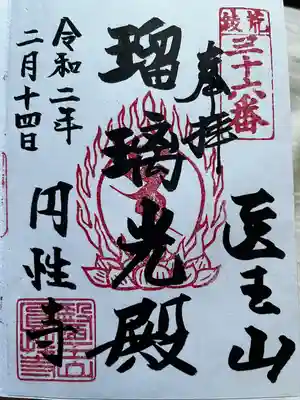 荒綾
三十六番
奉拝
医王山
瑠璃光殿
令和二年
二月十四日
円性寺